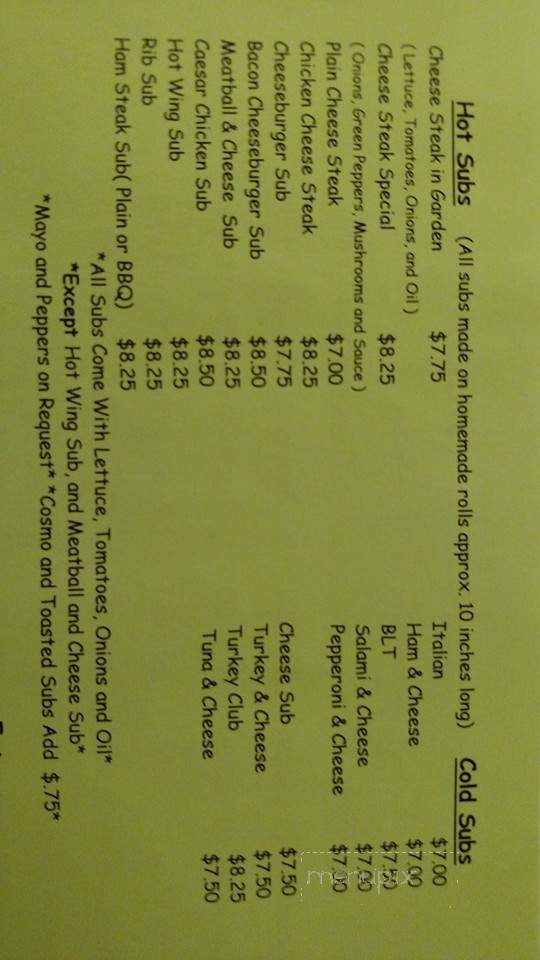 Hot Subs (All subs made on homemade rolls approx. 10 inches long) Cold Subs
Cheese Steak in Garden $7.75
( Lettuce, Tomatoes, Onions, and Oil )
Cheese Steak Special $8.25
( Onions, Green Peppers, Mushrooms and Sauce )
Plain Cheese Steak $7.00
Chicken Cheese Steak $8.25
Cheeseburger Sub $7.75
Bacon Cheeseburger Sub $8.50
Meatball & Cheese Sub $8.25
Caesar Chicken Sub $8.50
Hot Wing Sub $8.25
Rib Sub $8.25
Ham Steak Sub( Plain or BBQ) $8.25
Italian $7.00
Ham & Cheese $7.00
BLT $7.50
Salami & Cheese $7.00
Pepperoni & Cheese $7.00
Cheese Sub $7.50
Turkey & Cheese $7.50
Turkey Club $8.25
Tuna & Cheese $7.50
*All Subs Come With Lettuce, Tomatoes, Onions and Oil*
*Except Hot Wing Sub, and Meatball and Cheese Sub*
*Mayo and Peppers on Request* *Cosmo and Toasted Subs Add $.75*
menupix